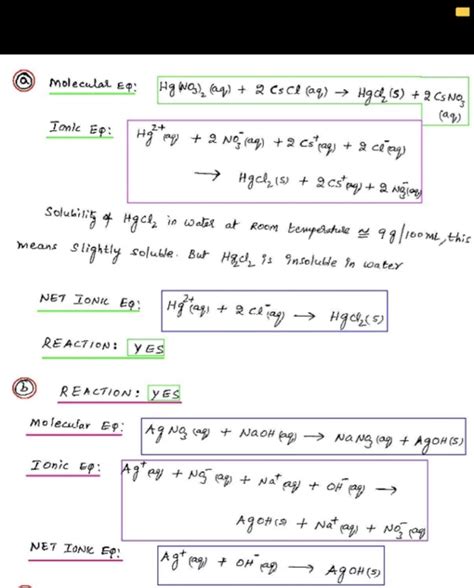 (a) Molecular Eq: Hg(NO3)2 (aq) + 2 CsCl (aq) → HgCl2 (s) + 2 CsNO3 (aq)
Ionic Eq: Hg2+ (aq) + 2 NO3- (aq) + 2 Cs+ (aq) + 2 Cl- (aq)
→ HgCl2 (s) + 2 Cs+ (aq) + 2 NO3- (aq)
Solubility of HgCl2 in water at room temperature ≃ 9 g/100 mL, this
means slightly soluble. But Hg2Cl2 is insoluble in water
NET IONIC Eq: Hg2+ (aq) + 2 Cl- (aq) → HgCl2 (s)
REACTION: YES
(b) REACTION: YES
Molecular Eq: AgNO3 (aq) + NaOH (aq) → NaNO3 (aq) + AgOH (s)
Ionic Eq: Ag+ (aq) + NO3- (aq) + Na+ (aq) + OH- (aq) →
AgOH (s) + Na+ (aq) + NO3- (aq)
NET IONIC Eq: Ag+ (aq) + OH- (aq) → AgOH (s)